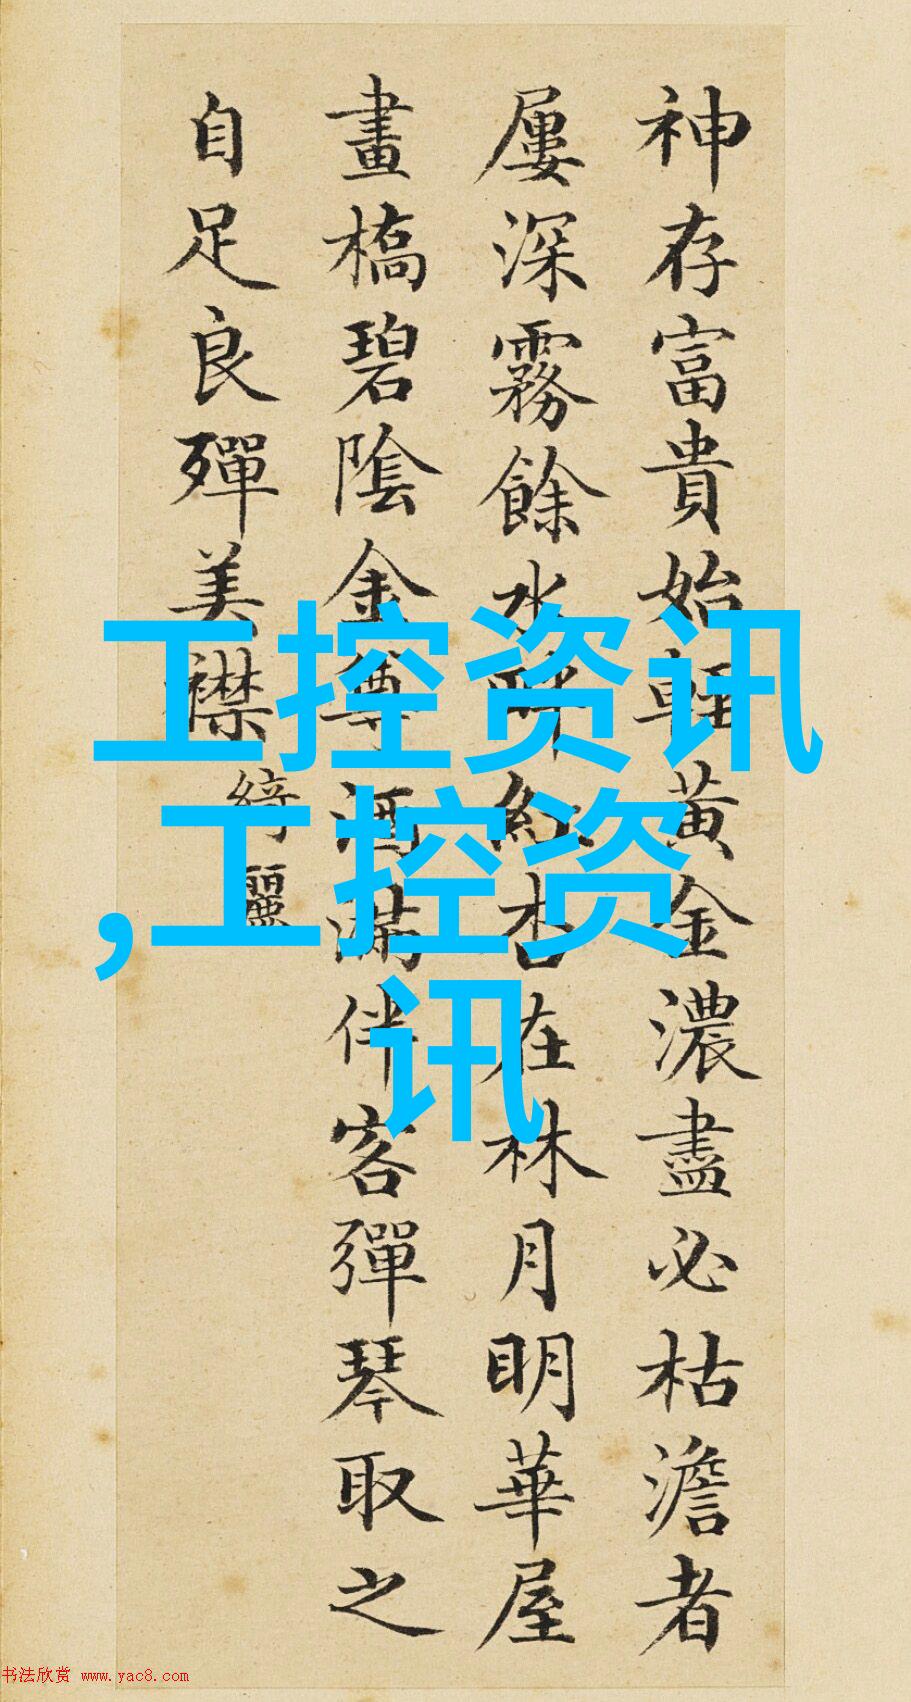 神存富貴始輕黃金濃盡必枯澹者
屢深霧餘水畔紅杏在林月明華屋
畫橋碧陰金尊酒滿伴客彈琴取之
自足良殫美襟
綺麗
工控资讯
,工控资
讯
书法欣赏 www.yac8.com